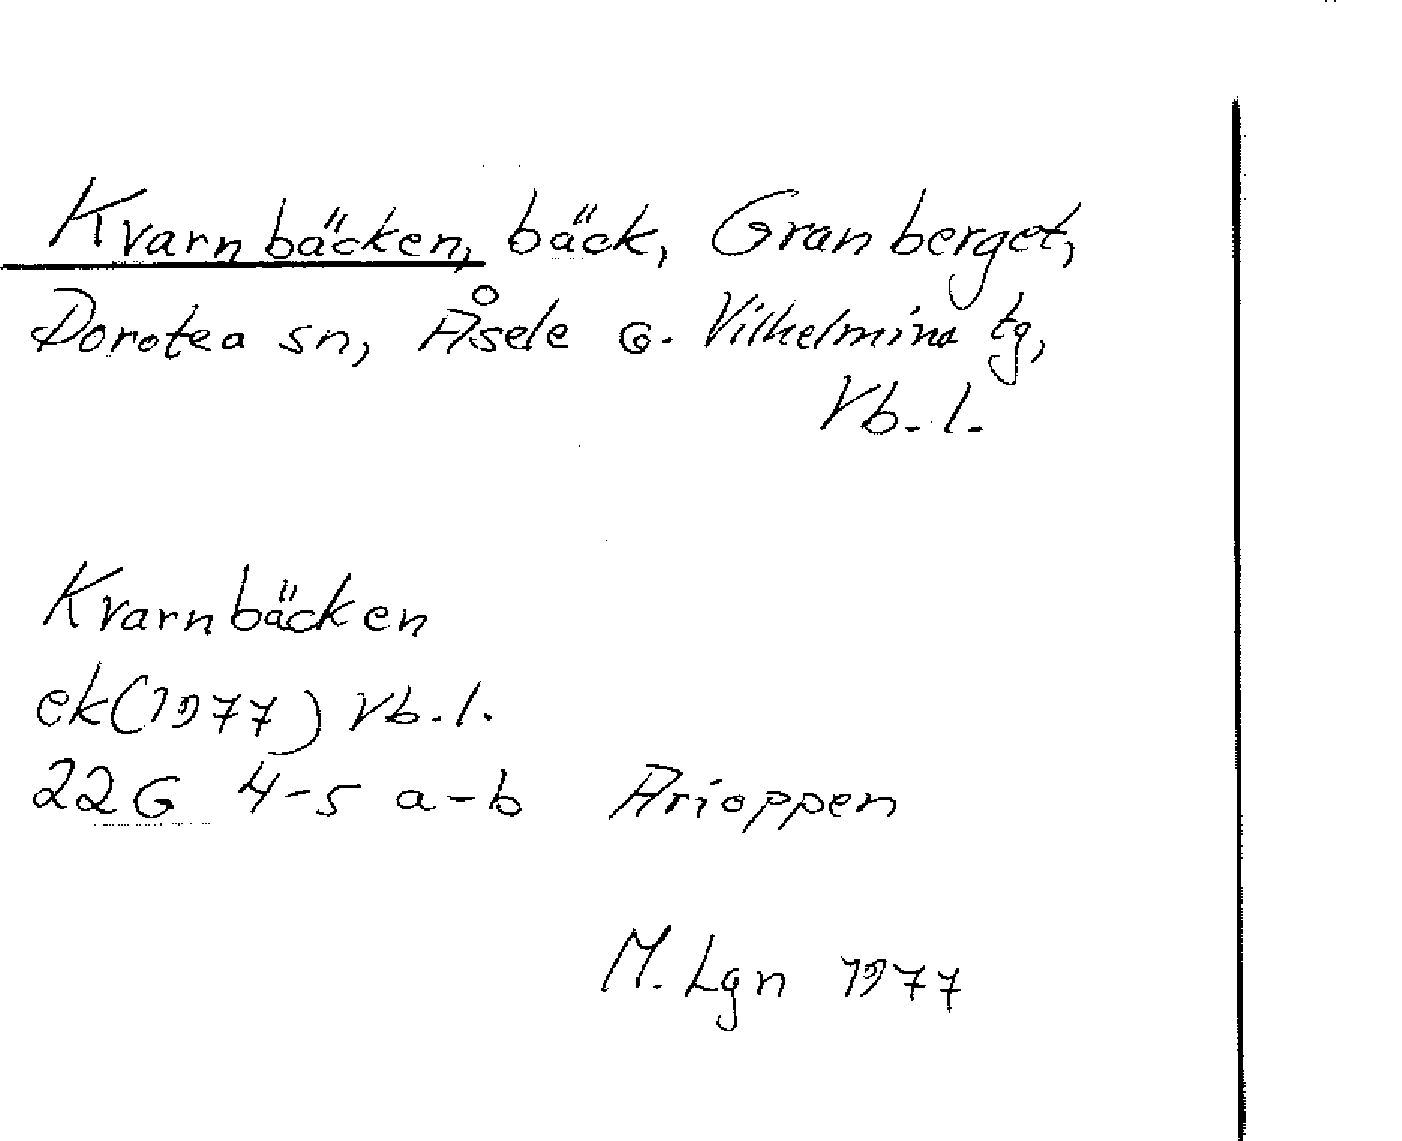 Kvarnbäcken, bäck, Granberget,
Dorotea sn, Åsele o. Vilhelmina tg,
Vb. l.
Kvarnbäcken
ek (1977) Vb. l.
22G 4-5 a-b Arioppen
M. Lgn 1977